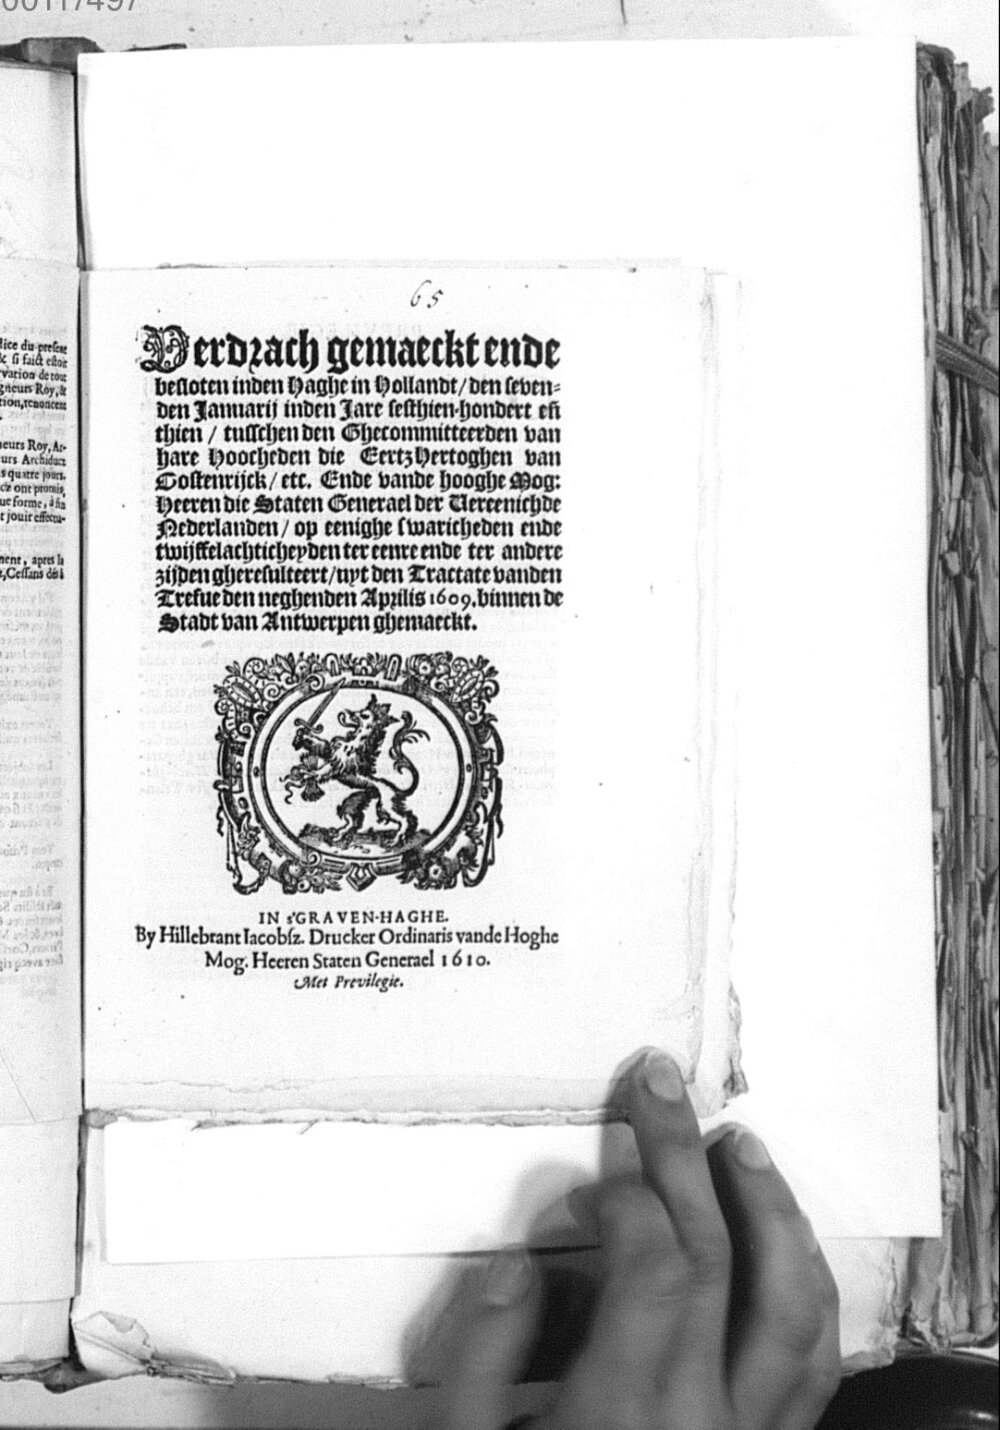 00117497
dice du present
& si faict estoit
vation de tout
gneurs Roy, &
tion, renoncent
neurs Roy, Ar-
urs Archiducz
s quatre jours.
cz ont promis,
ue forme, à fin
t jouir effectu-
nent, apres la
t, Cessans dés à
65
Verdrach gemaeckt ende
besloten inden Haghe in Hollandt / den seven-
den Januarij inden Jare sesthien-hondert eñ
thien / tusschen den Ghecommitteerden van
hare Hoocheden die Eertz Hertoghen van
Oostenrijck / etc. Ende vande hooghe Mog:
Heeren die Staten Generael der Vereenichde
Nederlanden / op eenighe swaricheden ende
twijffelachticheyden ter eenre ende ter andere
zijden gheresulteert / uyt den Tractate vanden
Tresue den neghenden Aprilis 1609. binnen de
Stadt van Antwerpen ghemaeckt.
IN s'GRAVEN-HAGHE.
By Hillebrant Iacobsz. Drucker Ordinaris vande Hoghe
Mog. Heeren Staten Generael 1610.
Met Previlegie.